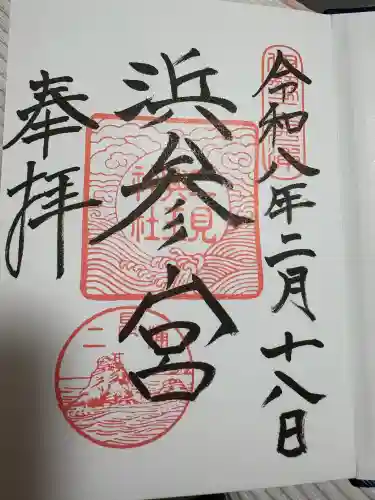 令和八年二月十八日
浜参宮
奉拝
二見
興玉
神社